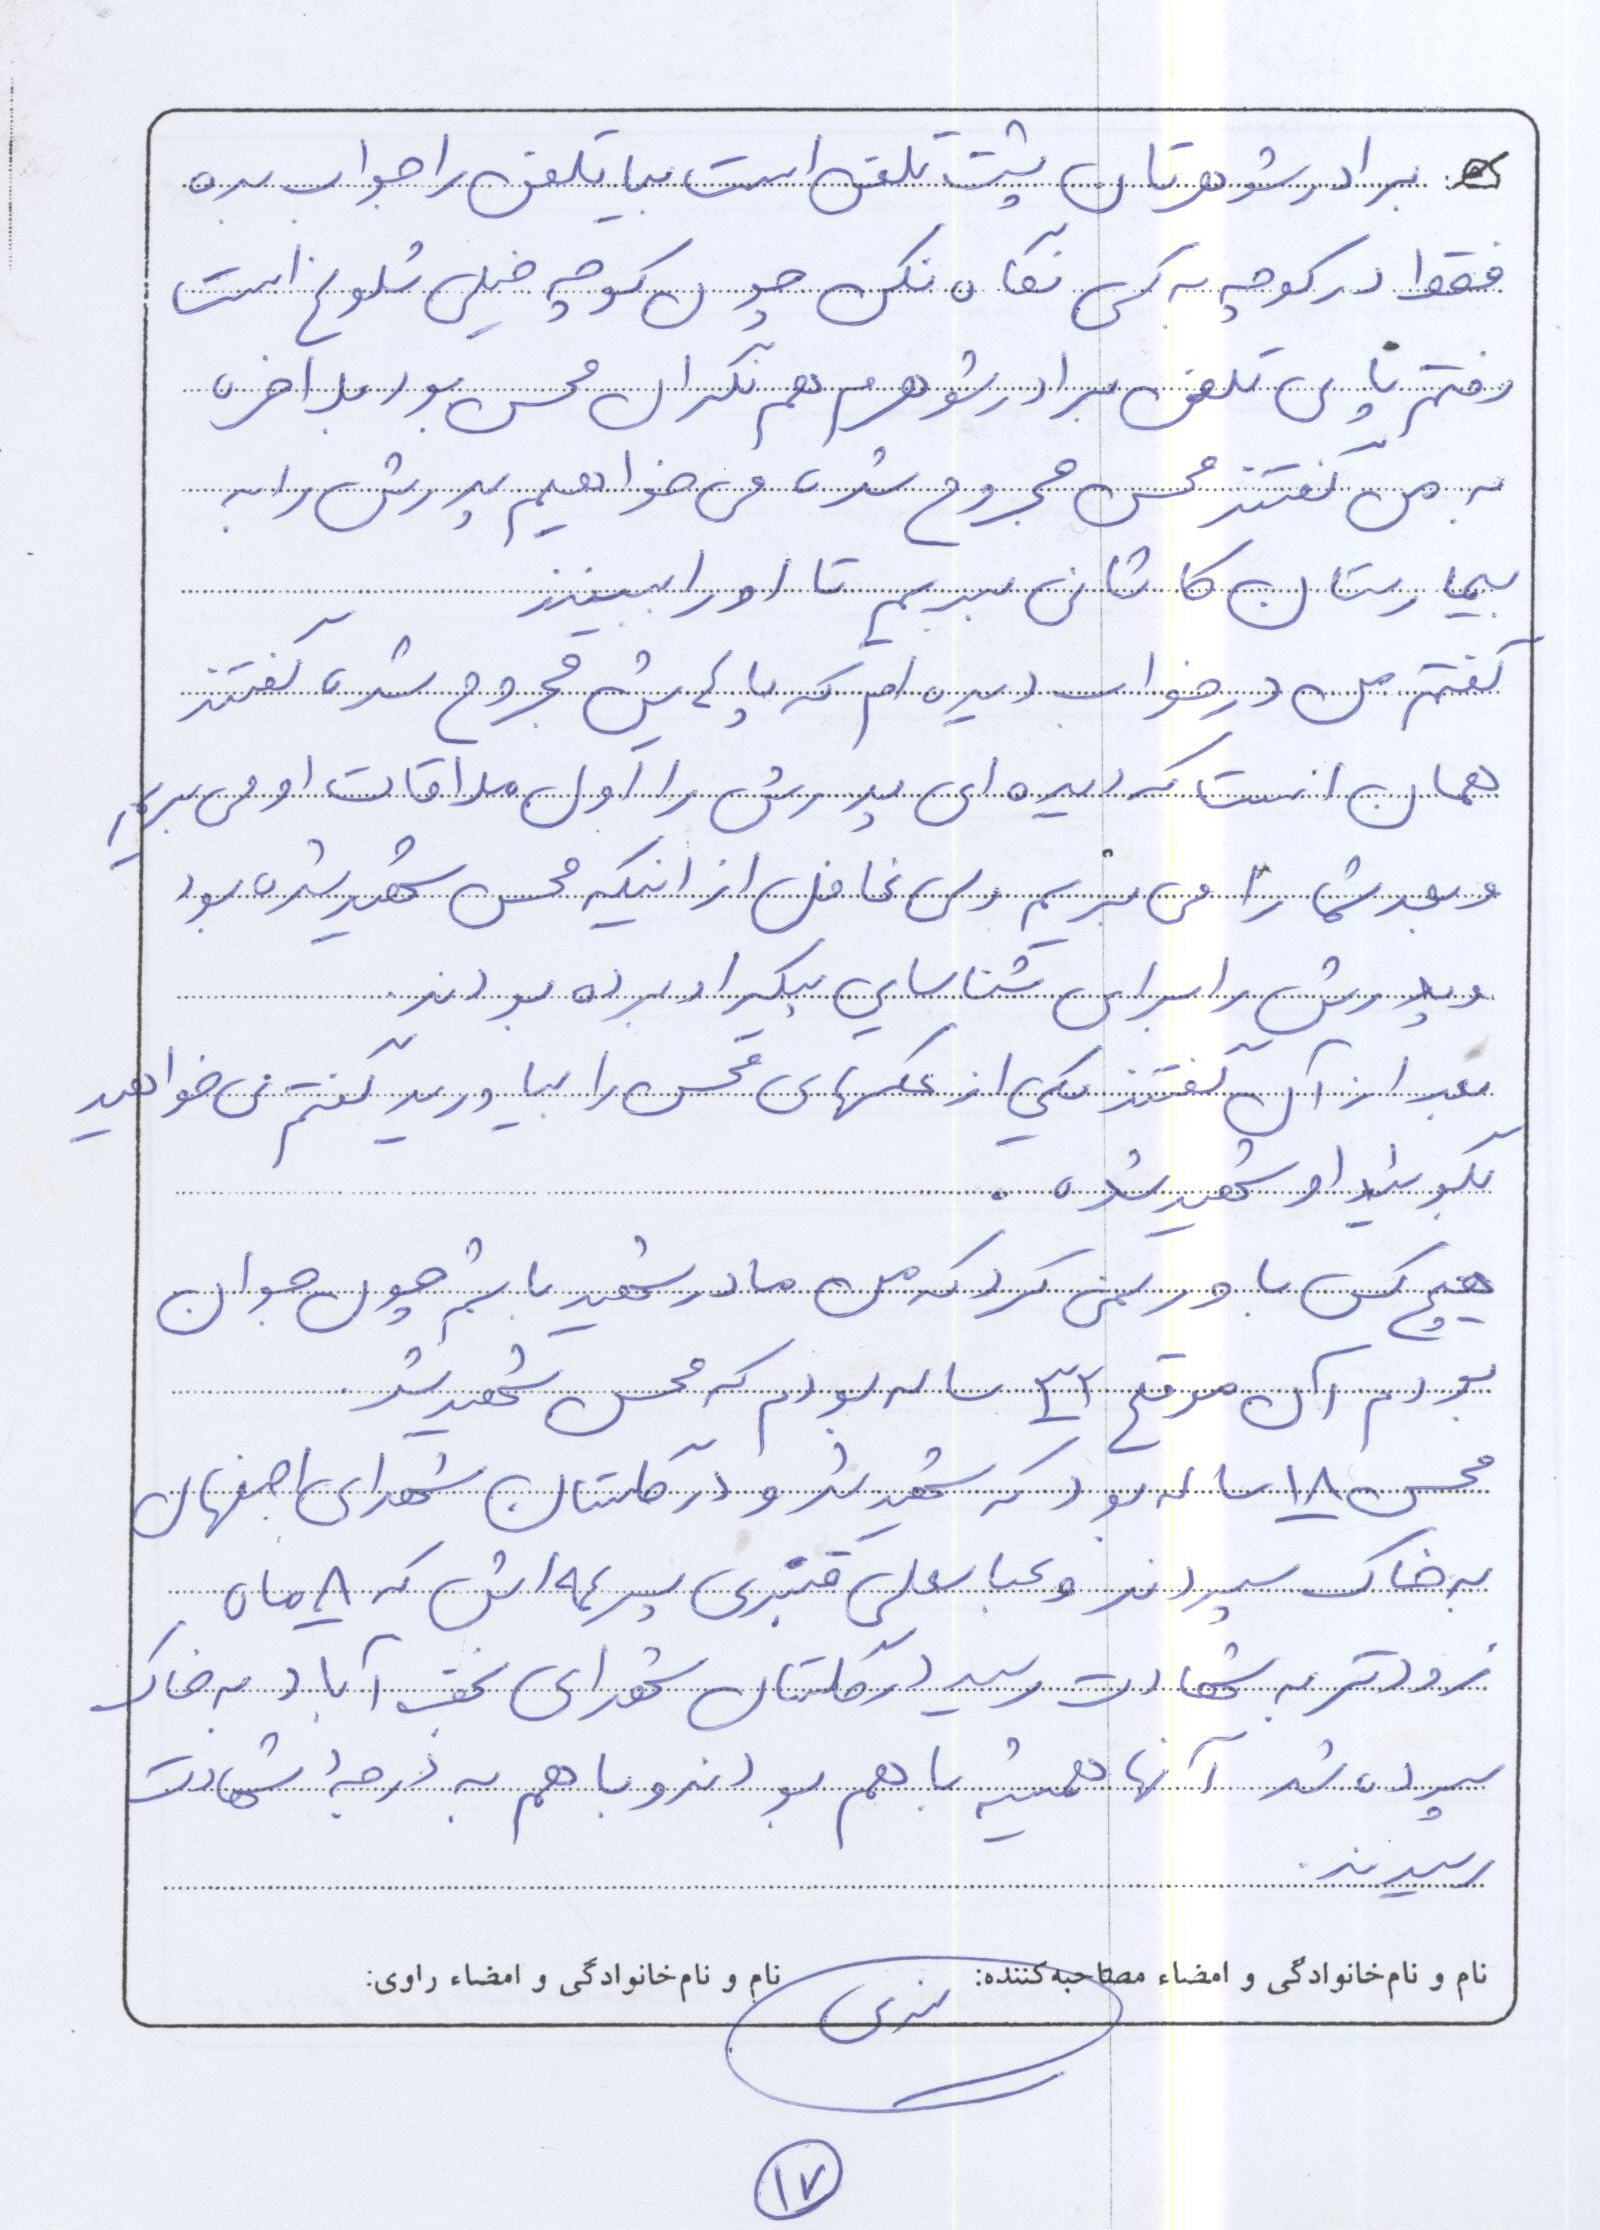 برادر شوهرتان پشت تلفن است بیا تلفن را جواب بده
فقط در کوچه به کسی نگاه نکن چون کوچه خیلی شلوغ است
رفتم پای تلفن برادر شوهرم هم نگران محسن بود بلاخره
به من گفتند محسن مجروح شده می خواهیم پدرش را به
بیمارستان کاشانی ببریم تا او را ببینند
گفتم من در خواب دیده ام که پاهایش مجروح شده گفتند
همان است که دیده ای پدرش را اول ملاقات او می بریم
و بعد شما را می بریم ولی غافل از اینکه محسن شهید شده بود
و پدرش را برای شناسایی پیکر او برده بودند.
بعد از آن گفتند یکی از عکسهای محسن را بیاورید گفتم می خواهید
بگوئید او شهید شده .
هیچ کس باور نمی کرد که من مادر شهید باشم چون جوان
بودم آن موقع ۳۲ ساله بودم که محسن شهید شد.
محسن ۱۸ ساله بود که شهید شد و در گلستان شهدای اصفهان
به خاک سپردند و عباسعلی قنبری پسر عمه اش که ۸ ماه
زودتر به شهادت رسید در گلستان شهدای نجف آباد به خاک
سپرده شد آنها همیشه با هم بودند و با هم به درجهٔ شهادت
رسیدند.
نام و نام‌خانوادگی و امضاء مصاحبه‌کننده: نام و نام‌خانوادگی و امضاء راوی:
۱۷